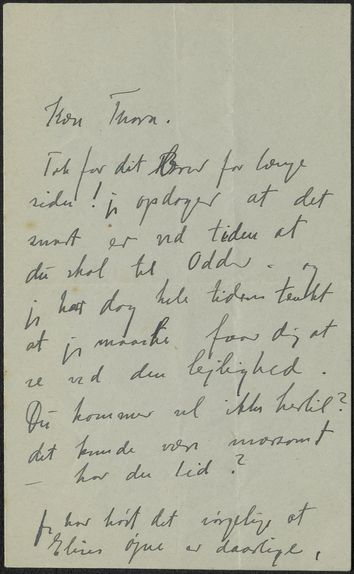 Kære Thora.
Tak for dit Brev for længe
siden! jeg opdager at det
snart er ved tiden at
du skal til Odder. og
jeg har dog hele tiden tænkt
at jeg maaske faar dig at
se ved den lejlighed.
Du kommer vel ikke hertil?
det kunde være morsomt
– har du tid?
Jeg har hørt det sørgelige at
Elises øjne er daarlige,